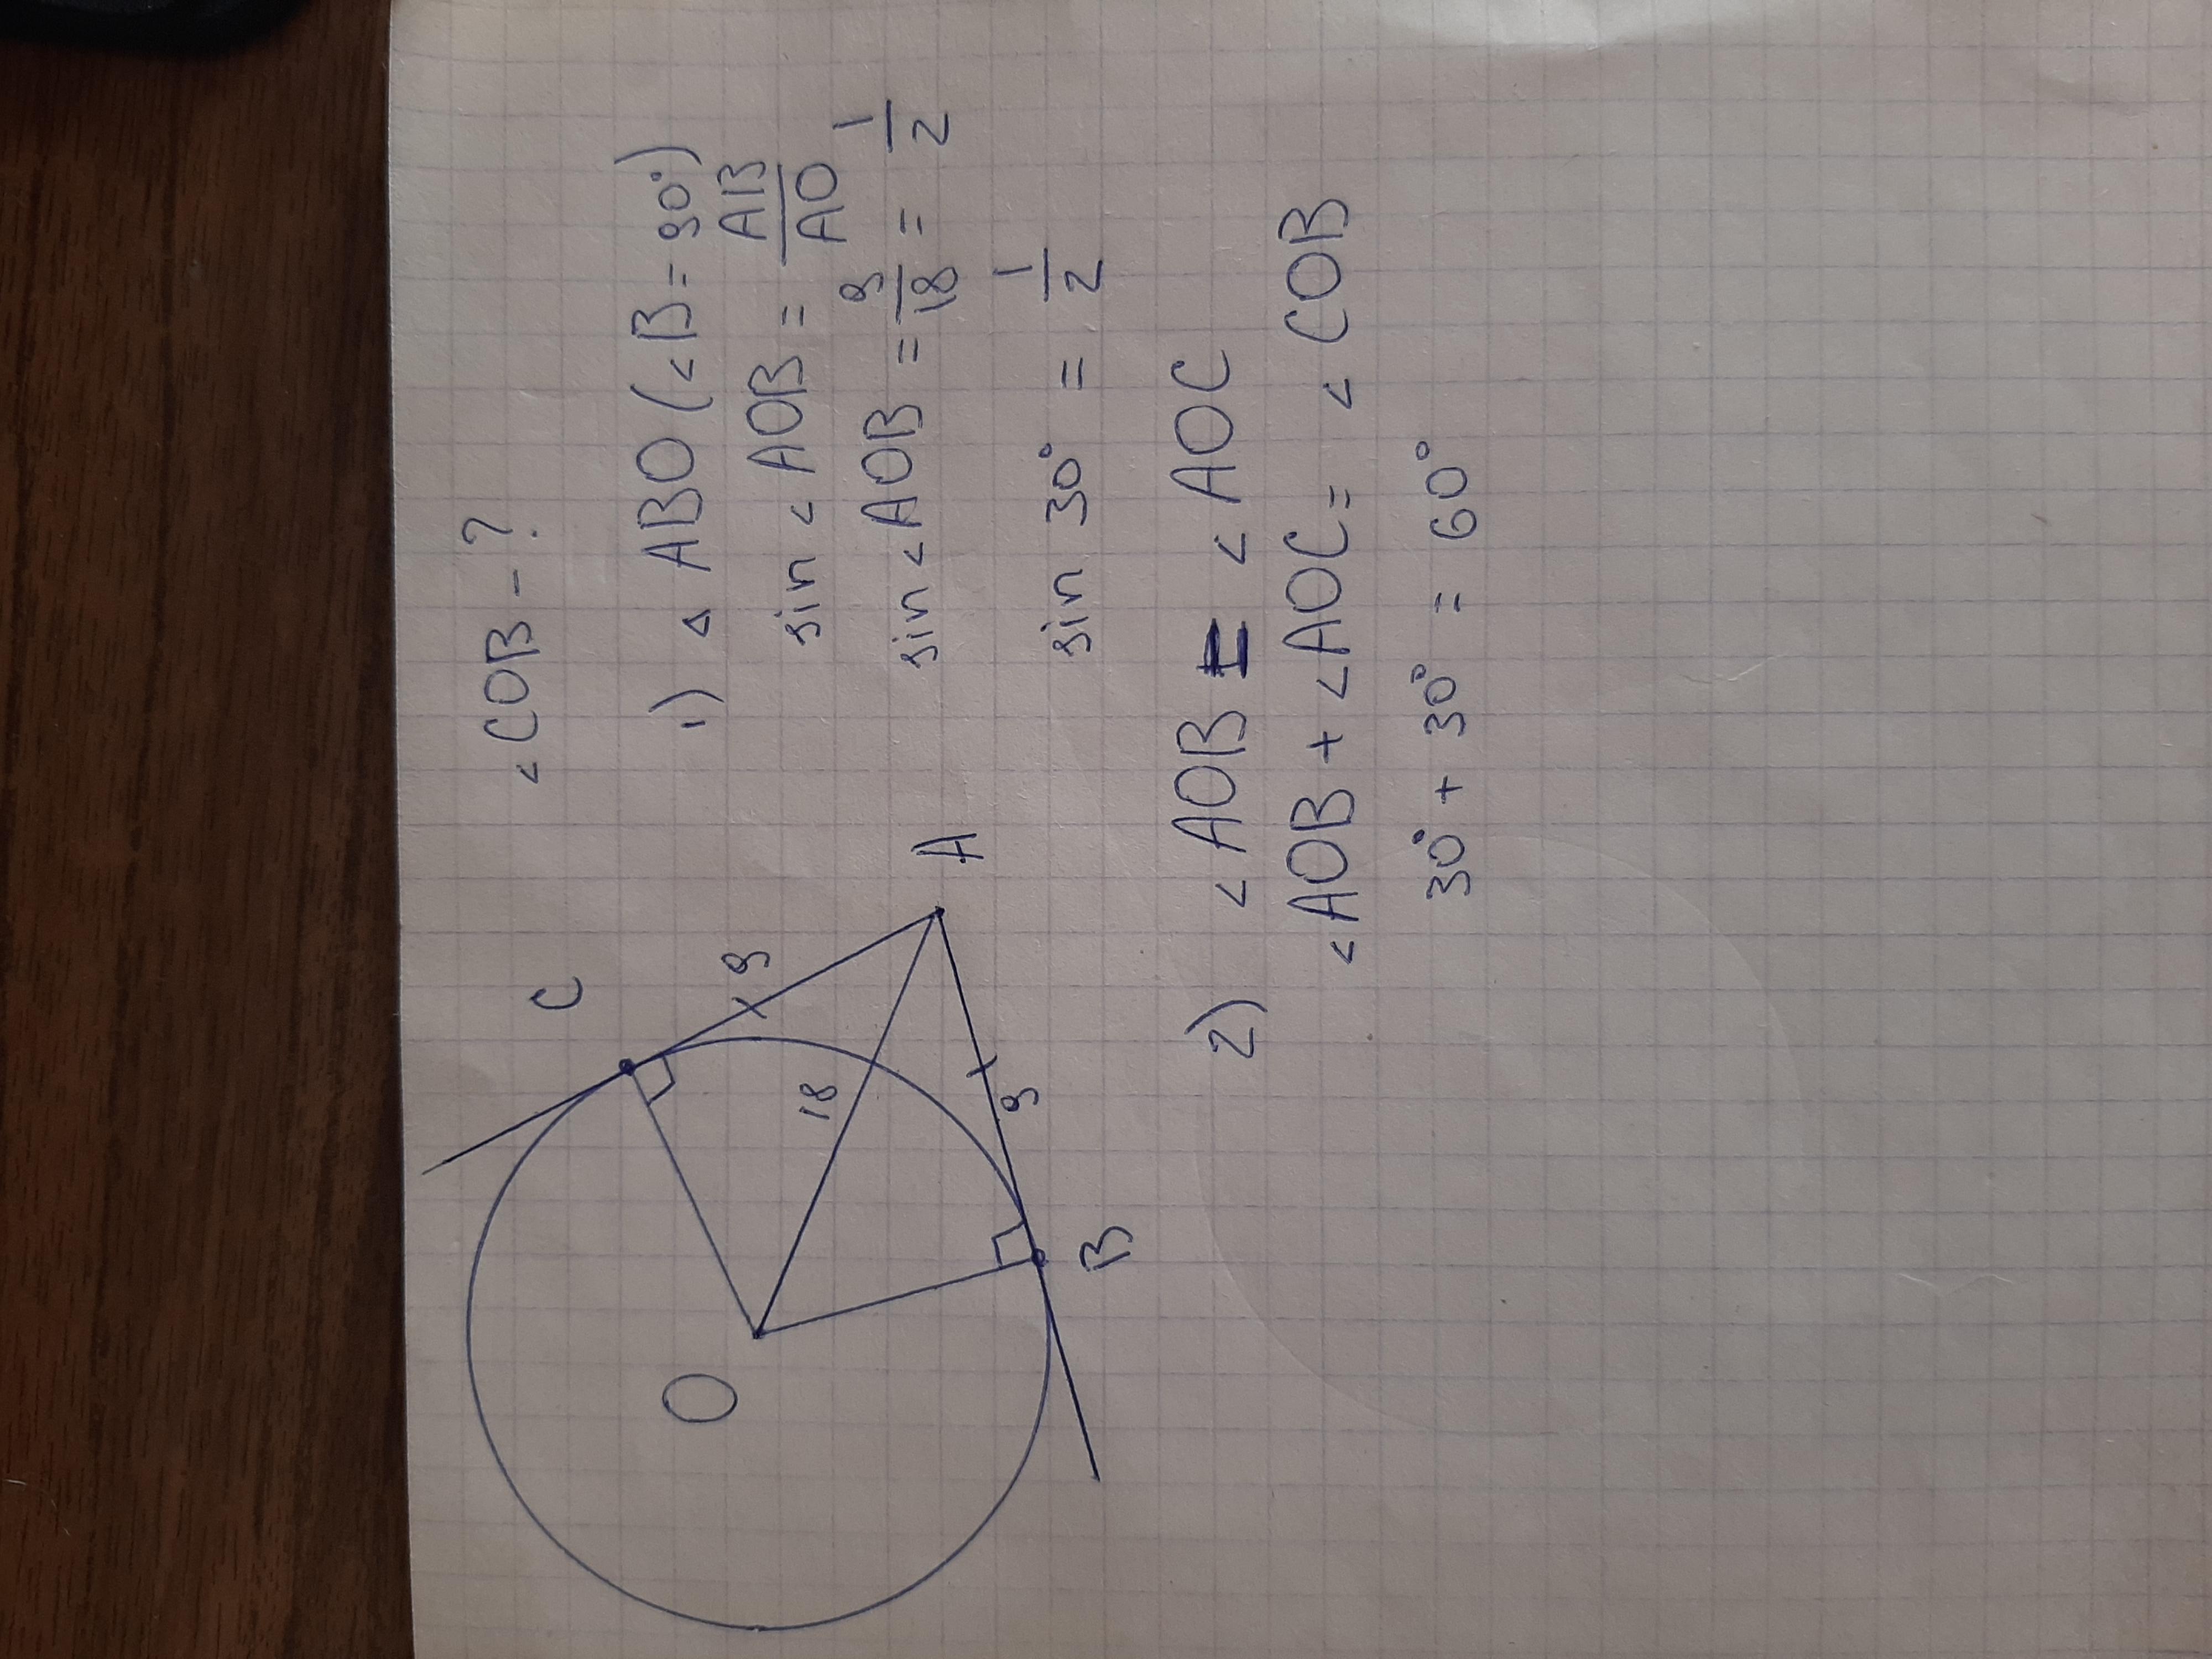 ∠COB - ?
C
O
A
B
9
18
9
1) △ ABO (∠B = 90°)
sin ∠ AOB = AB/AO
sin ∠ AOB = 9/18 = 1/2
sin 30° = 1/2
2) ∠ AOB = ∠ AOC
∠AOB + ∠AOC = ∠ COB
30° + 30° = 60°